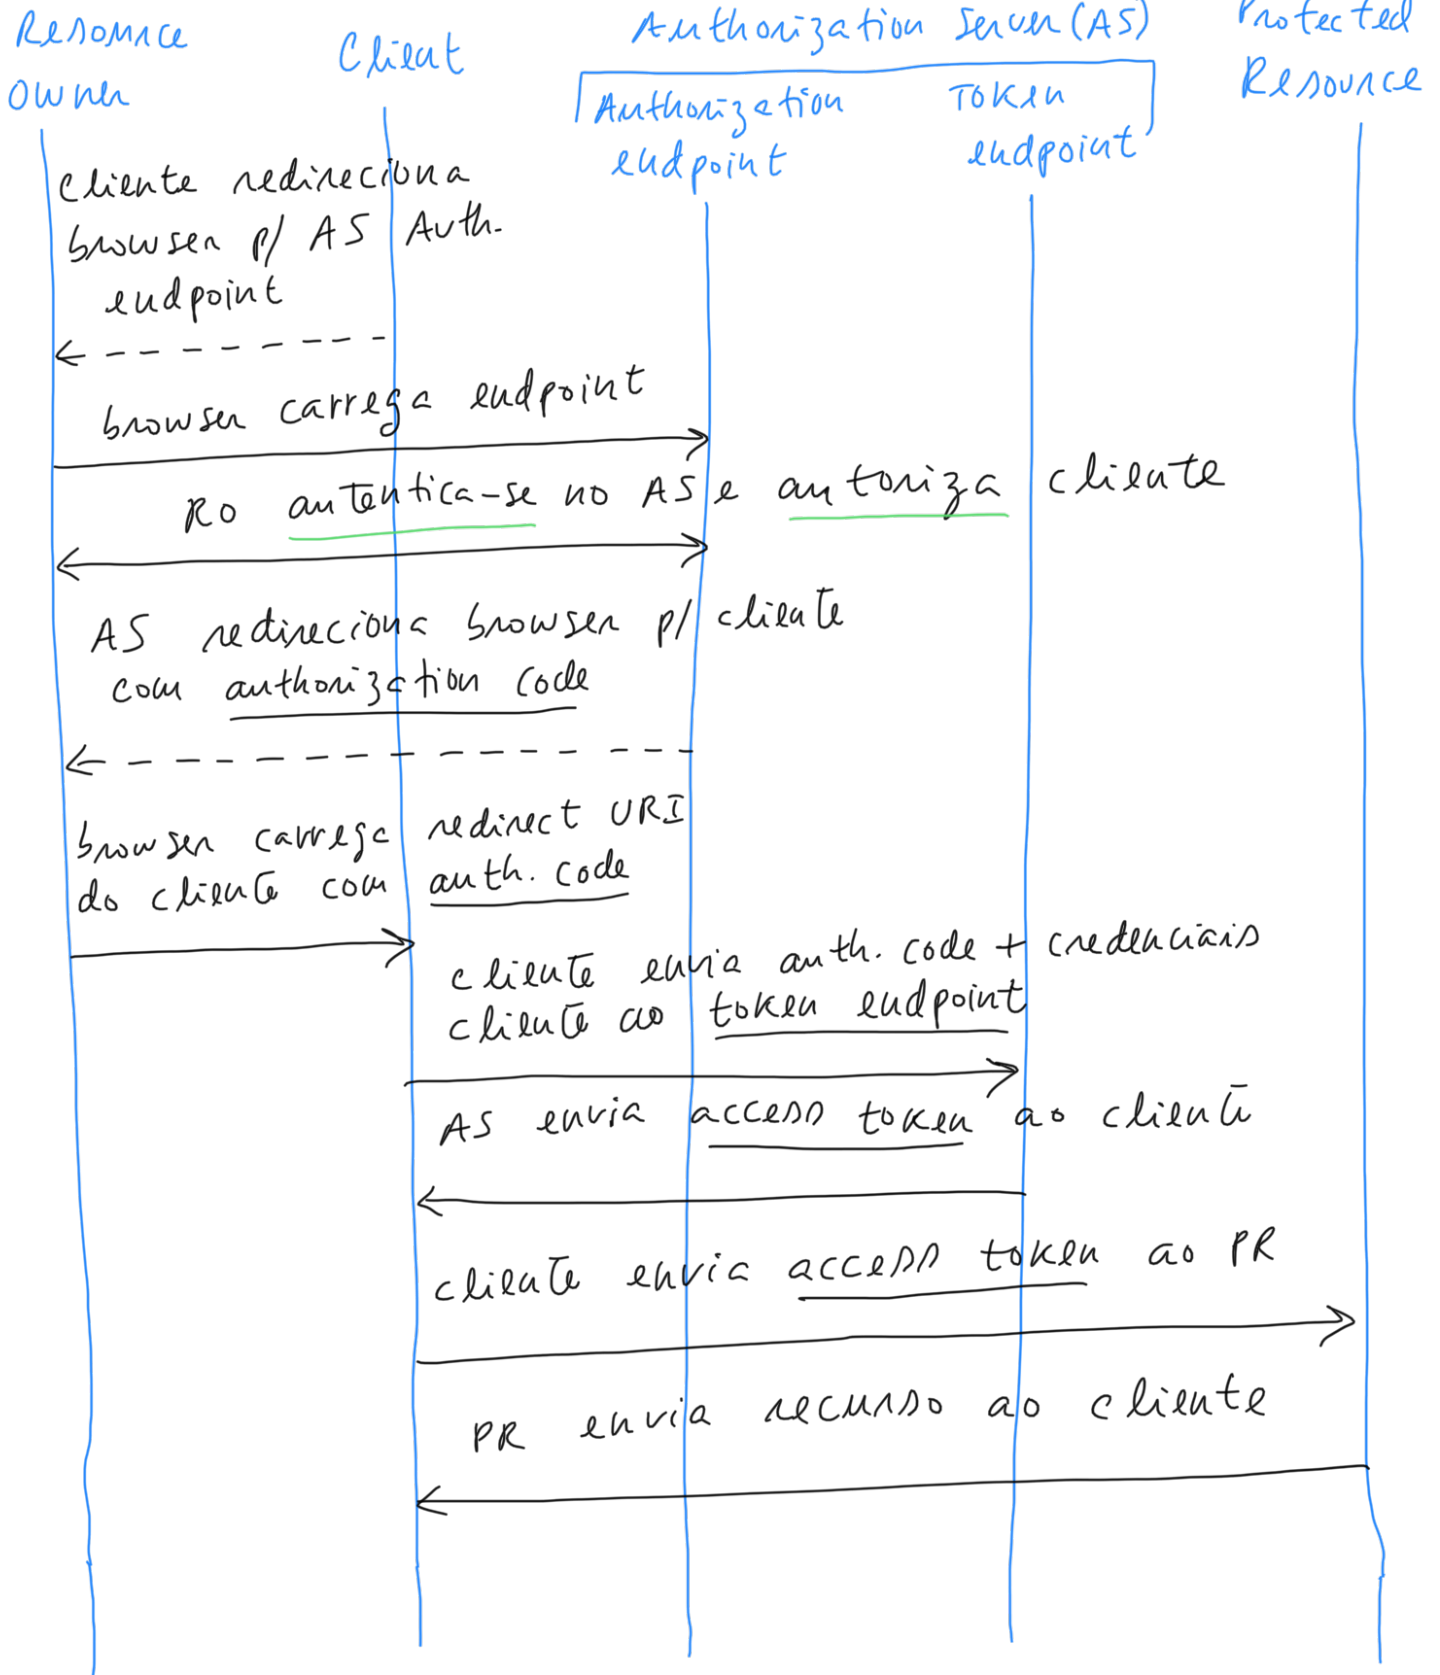 Resource
owner
Client
Authorization Server (AS)
Authorization
endpoint
Token
endpoint
Protected
Resource
cliente redireciona
browser p/ AS Auth.
endpoint
browser carrega endpoint
RO autentica-se no AS e autoriza cliente
AS redireciona browser p/ cliente
com authorization code
browser carrega redirect URI
do cliente com auth. code
cliente envia auth. code + credenciais
cliente ao token endpoint
AS envia access token ao cliente
cliente envia access token ao PR
PR envia recurso ao cliente